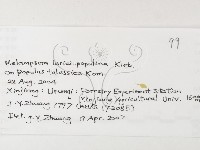 99
Melampsora larici-populina Kleb.
on Populus talassica Kom.
22 Aug. 2001
Xinjiang: Urumqi: Forestry Experiment Station
Xinjiang Agricultural Univ.
J.-Y. Zhuang
Det. J.-Y. Zhuang Apr. 2002